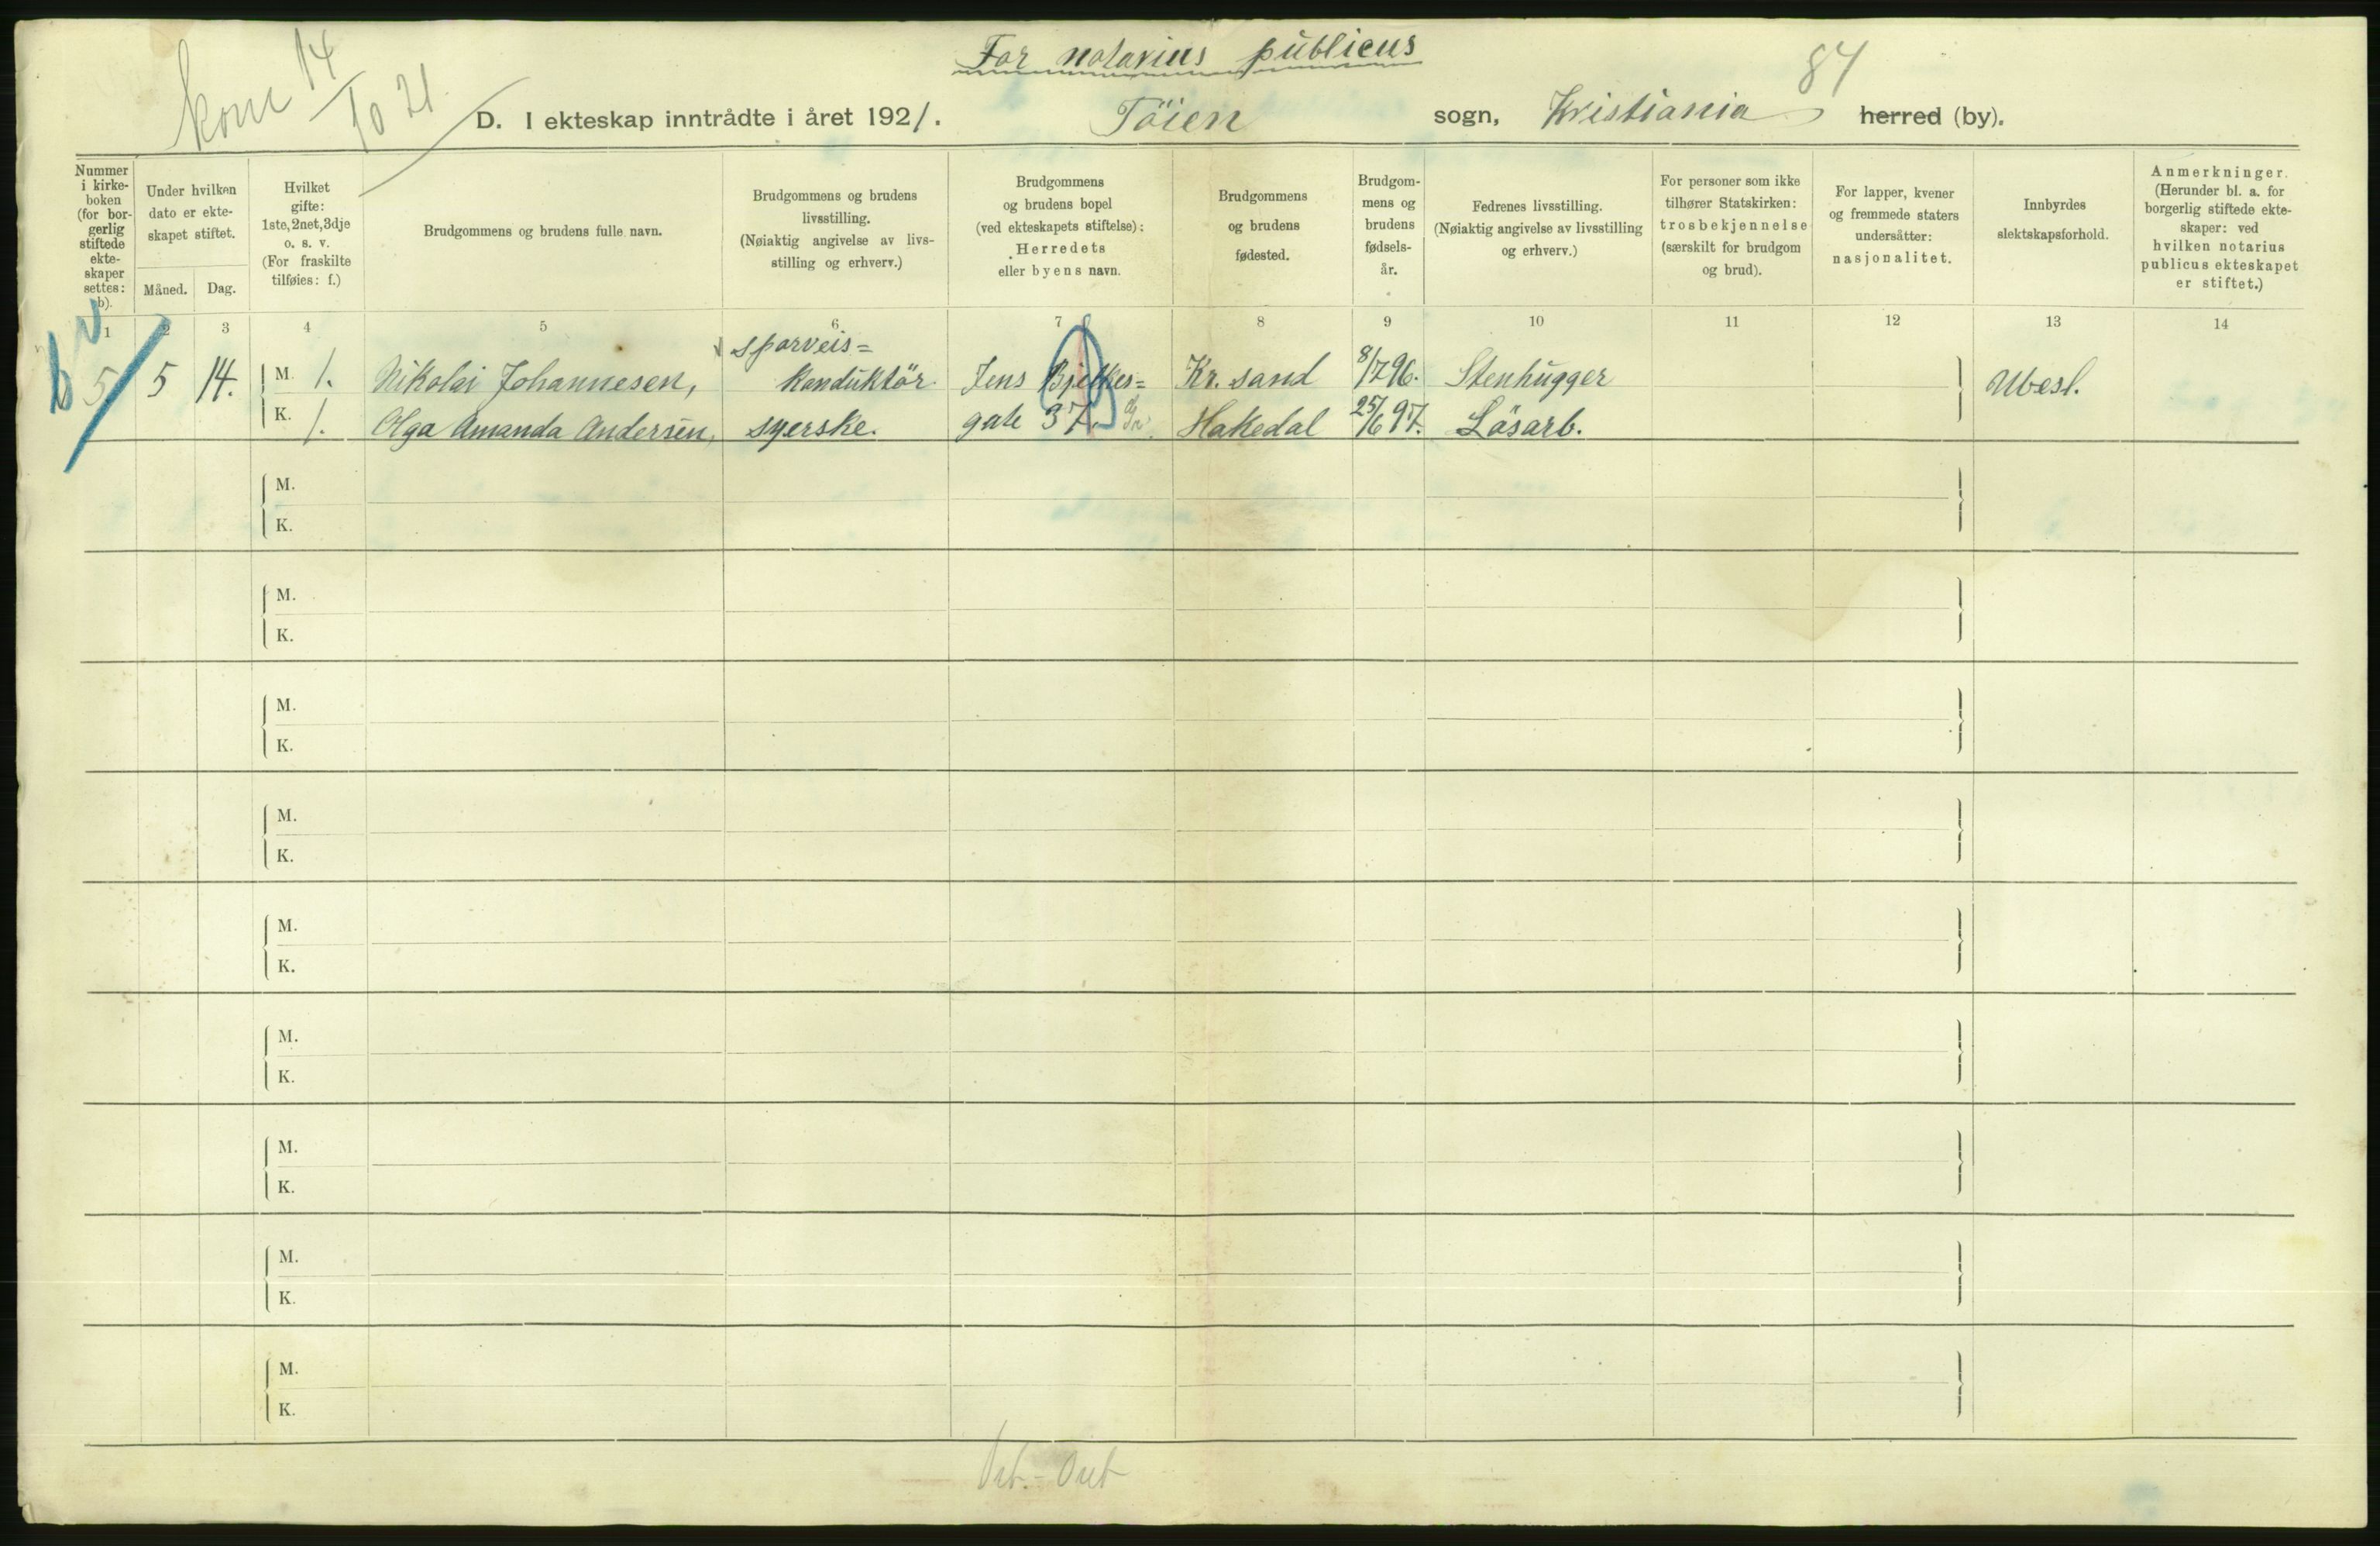 For notarius publicus
84
kom 14/10 21
D. I ekteskap inntrådte i året 1921. Töien sogn, Kristiania herred (by).
Nummer i kirke- boken (for bor- gerlig stiftede ekte- skaper settes: b).
Under hvilken dato er ekte- skapet stiftet.
Måned. Dag.
Hvilket gifte: 1ste, 2net, 3dje o. s. v. (For fraskilte tilføies: f.)
Brudgommens og brudens fulle navn.
Brudgommens og brudens livsstilling. (Nøiaktig angivelse av livs- stilling og erhverv.)
Brudgommens og brudens bopel (ved ekteskapets stiftelse): Herredets eller byens navn.
Brudgommens og brudens fødested.
Brudgom- mens og brudens fødsels- år.
Fedrenes livsstilling. (Nøiaktig angivelse av livsstilling og erhverv.)
For personer som ikke tilhører Statskirken: trosbekjennelse (særskilt for brudgom og brud).
For lapper, kvener og fremmede staters undersåtter: nasjonalitet.
Innbyrdes slektskapsforhold.
Anmerkninger. (Herunder bl. a. for borgerlig stiftede ekte- skaper: ved hvilken notarius publicus ekteskapet er stiftet.)
1 2 3 4 5 6 7 8 9 10 11 12 13 14
sporveis=
b 5 5 14. M. 1. Nikolai Johannesen, konduktör. Jens Bjelkes= Kr. sand 8/7 96. Stenhugger Ubesl.
K. 1. Olga Amanda Andersen, syerske. gate 37. Hakedal 25/6 97. Lösarb.
M.
K.
M.
K.
M.
K.
M.
K.
M.
K.
M.
K.
M.
K.
M.
K.
M.
K.